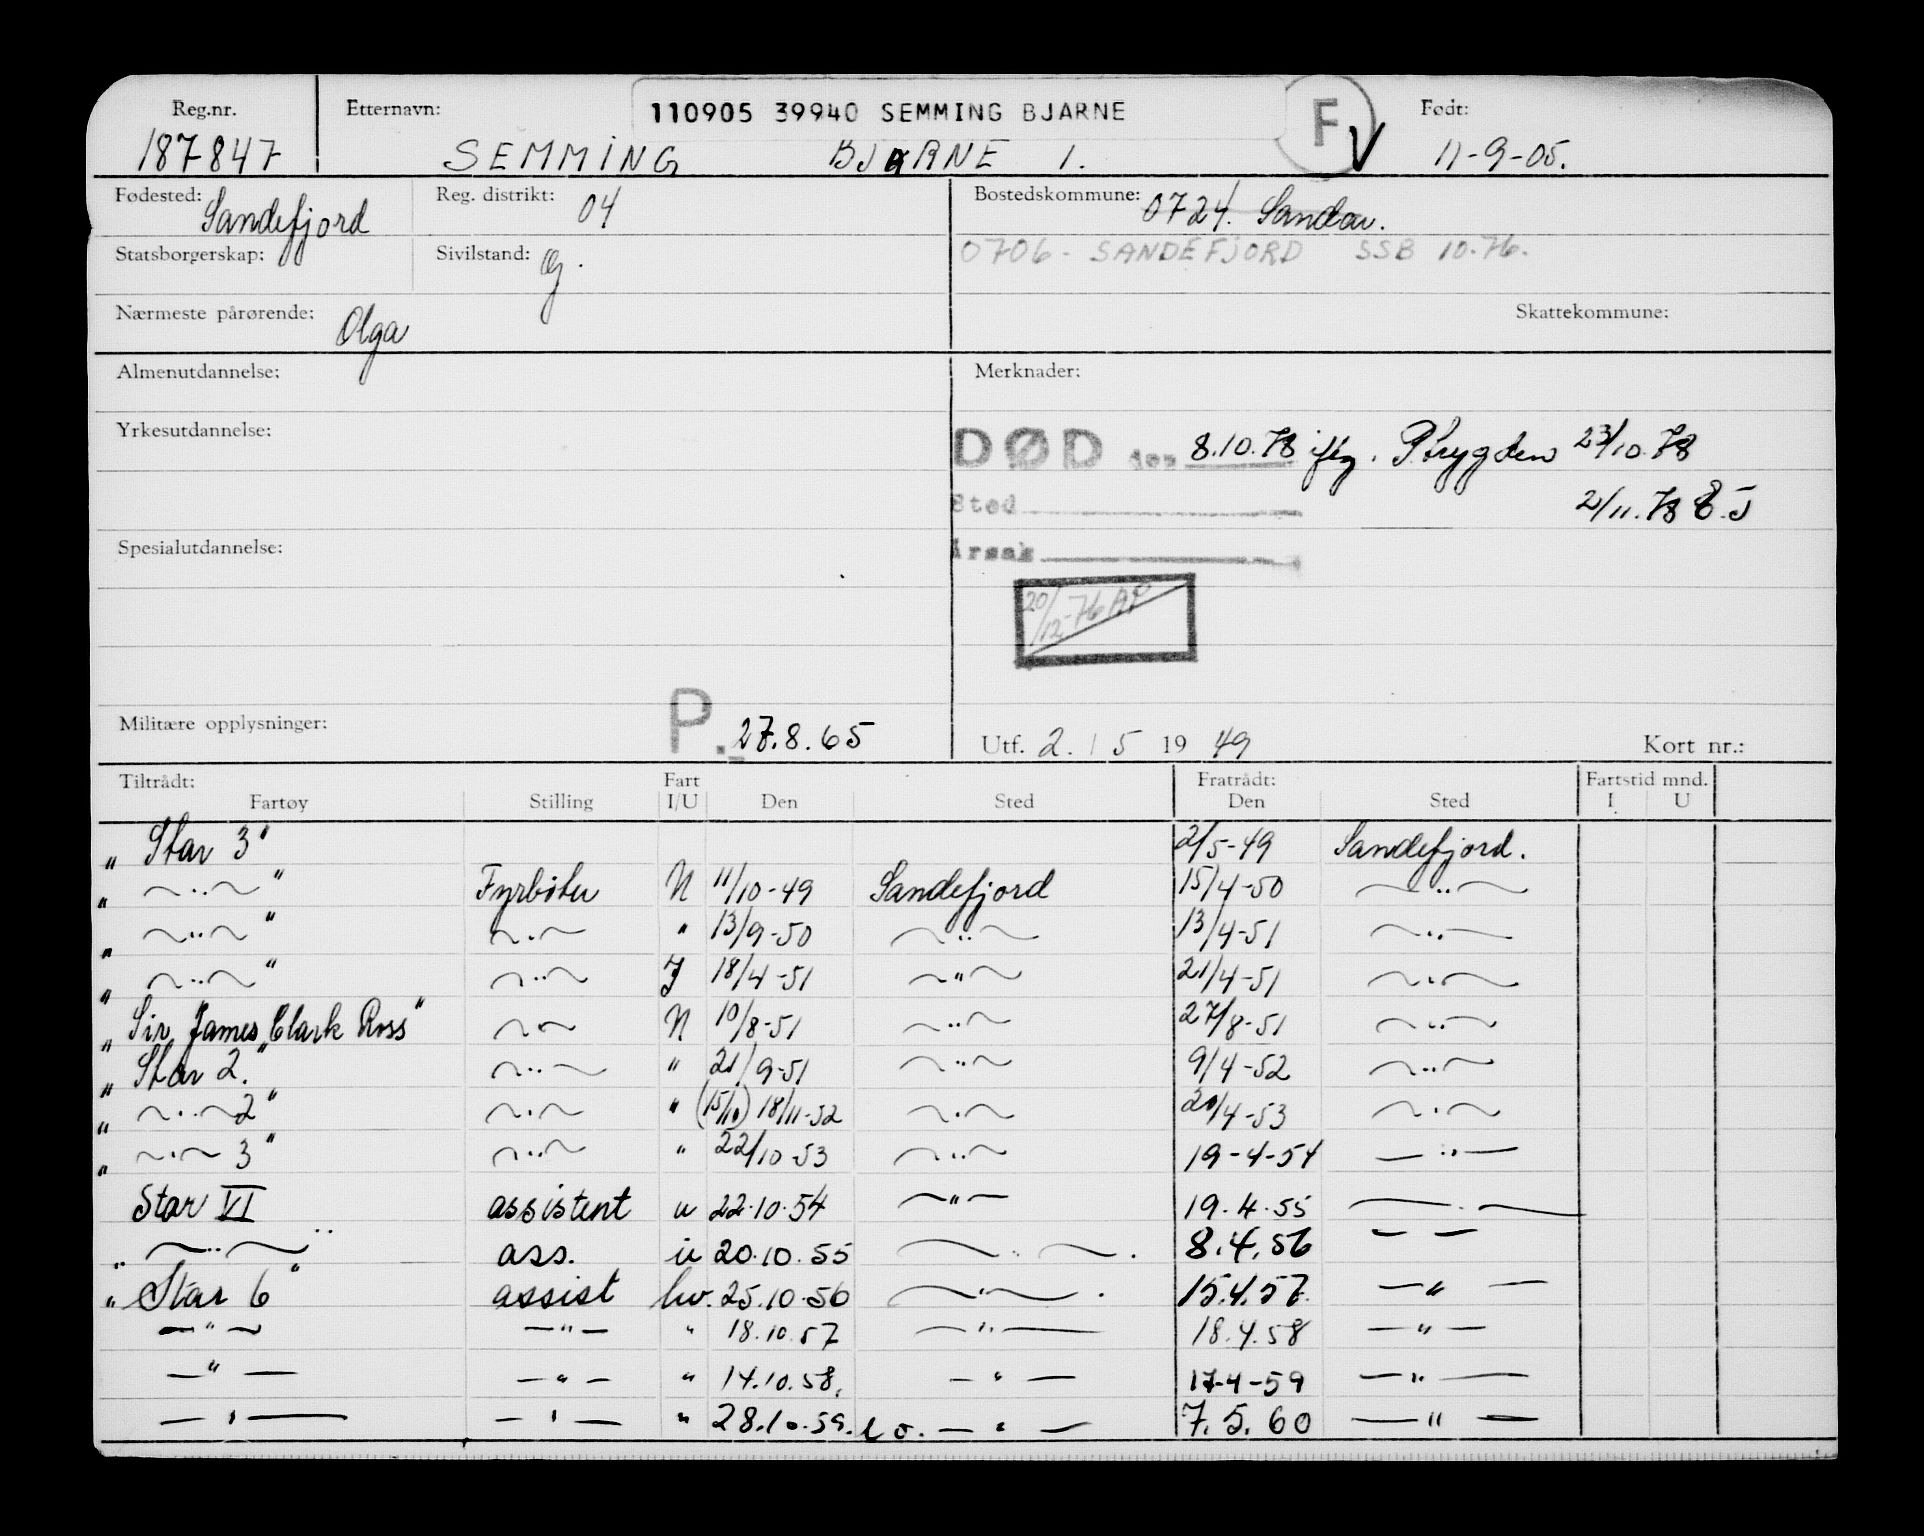 Reg.nr. Etternavn: 110905 39940 SEMMING BJARNE F V Født:
187847 SEMMING BJARNE I. 11-9-05.
Fødested: Sandefjord Reg. distrikt: 04 Bostedskommune: 0724. Sandar.
Statsborgerskap: Sivilstand: g. 0706 - SANDEFJORD SSB 10.76.
Nærmeste pårørende: Olga Skattekommune:
Almenutdannelse: Merknader:
Yrkesutdannelse: DØD den 8.10.78 iflg. P.trygden 23/10.78
Sted 2/11.78 E.J
Spesialutdannelse: Årsak
20/12-76
Militære opplysninger: P. 27.8.65 Utf. 2. / 5 19 49 Kort nr.:
Tiltrådt: Fart Fratrådt: Fartstid mnd.
Fartøy Stilling I/U Den Sted Den Sted I U
" Star 3" 2/5-49 Sandefjord.
" ~..~ " Fyrbøter N 11/10-49 Sandefjord 15/4-50 ~..~
" ~..~ " ~.~ " 13/9-50 ~..~ 13/4-51 ~..~
" ~..~ " ~..~ I 18/4-51 ~"~ 21/4-51 ~.~
" Sir James Clark Ross" ~.~ N 10/8-51 ~..~ 27/8-51 ~..~
" Star 2." ~..~ " 21/9-51 ~..~ 9/4-52 ~..~
" ~..~ 2" ~.~ " (15/10) 18/11-52 ~.~ 20/4-53 ~.~
" ~.~ 3" ~..~ " 22/10-53 ~..~ 19-4-54 — .. —
Star VI assistent u 22.10.54 ~"— 19.4.55 ~.~
" ~..~ " ass. u 20.10.55 ~..~. 8.4.56 — —
" Star 6" assist hv. 25.10.56 ~"~. 15.4.57. — " —
— " ~ — " — " 18.10.57 — " — 18.4.58 — " —
— " — — " — " 14.10.58. — " — 17-4-59 — " —
— " — — " — " 28.10.59. — " — 7.5.60 — " —